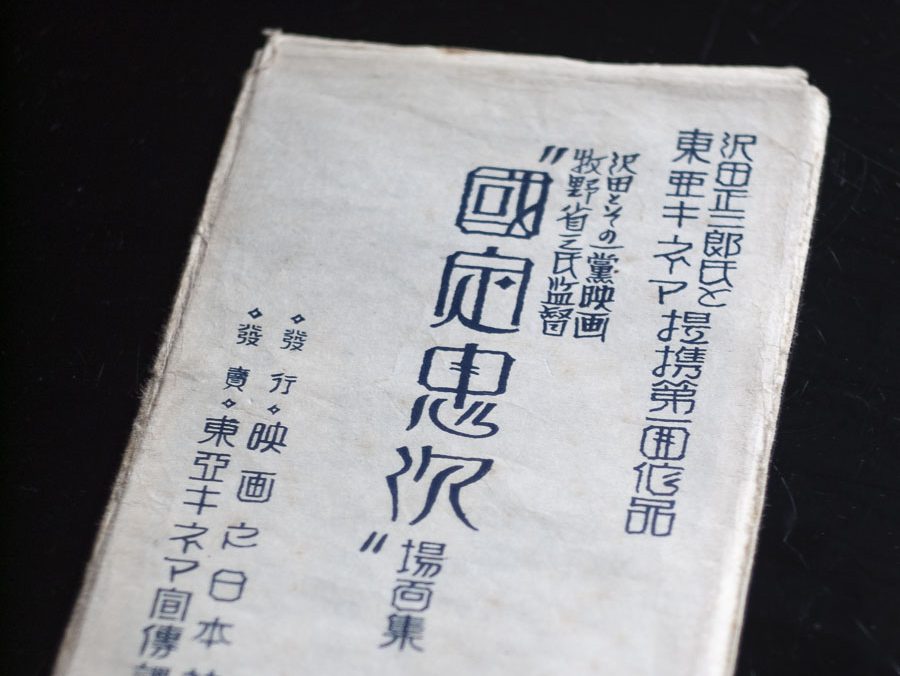 沢田正二郎氏と
東亜キネマ提携第一囬作品
沢田とその一党映画
牧野省三氏監督
"國定忠次"
場面集
◇發行◇映画と日本
◇發賣◇東亞キネマ宣傳課